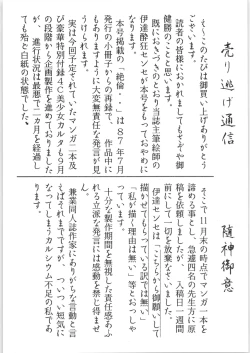 売り逃げ通信
随神御意
え〜このたびは御買い上げありがとう
読者の皆様におかれましてもぞや御
健勝のことと思います。
既におききのとおり当誌主筆絵師の
伊達酔狂センセが本号をもっておやめに
なられます。
本号掲載の「絶倫・」は87年7月
発行の小冊子からの再録で、作品中に
もありますように大変無責任な発言が見
うけられます。
実は今回予定されていたマンガ二本及
び豪華特別付録4C美少女カルタも9月
の段階から企画製作を進めておりました
が、進行状況は最悪で二カ月を経過し
ても殆ど白紙の状態でした。
そこで11月末の時点でマンガ一本を
諦める事とし、急遽四名の先生方に原
稿を依頼しましたが、入稿日一週間
前に仕事を放棄なさいました。
伊達センセは「こちらから御願いして
描かせてもらってる訳では無い」
「私が描く理由は無い」等とおっしゃ
っております。
十分な製作期間を無視した責任感あふ
れる立派な発言には感動を禁じ得ませ
ん。
兼業同人誌作家にありがちな言動と
いえばそれまでですが、ついつい短気に
なってしまうカルシウム不足の私であ
ります。